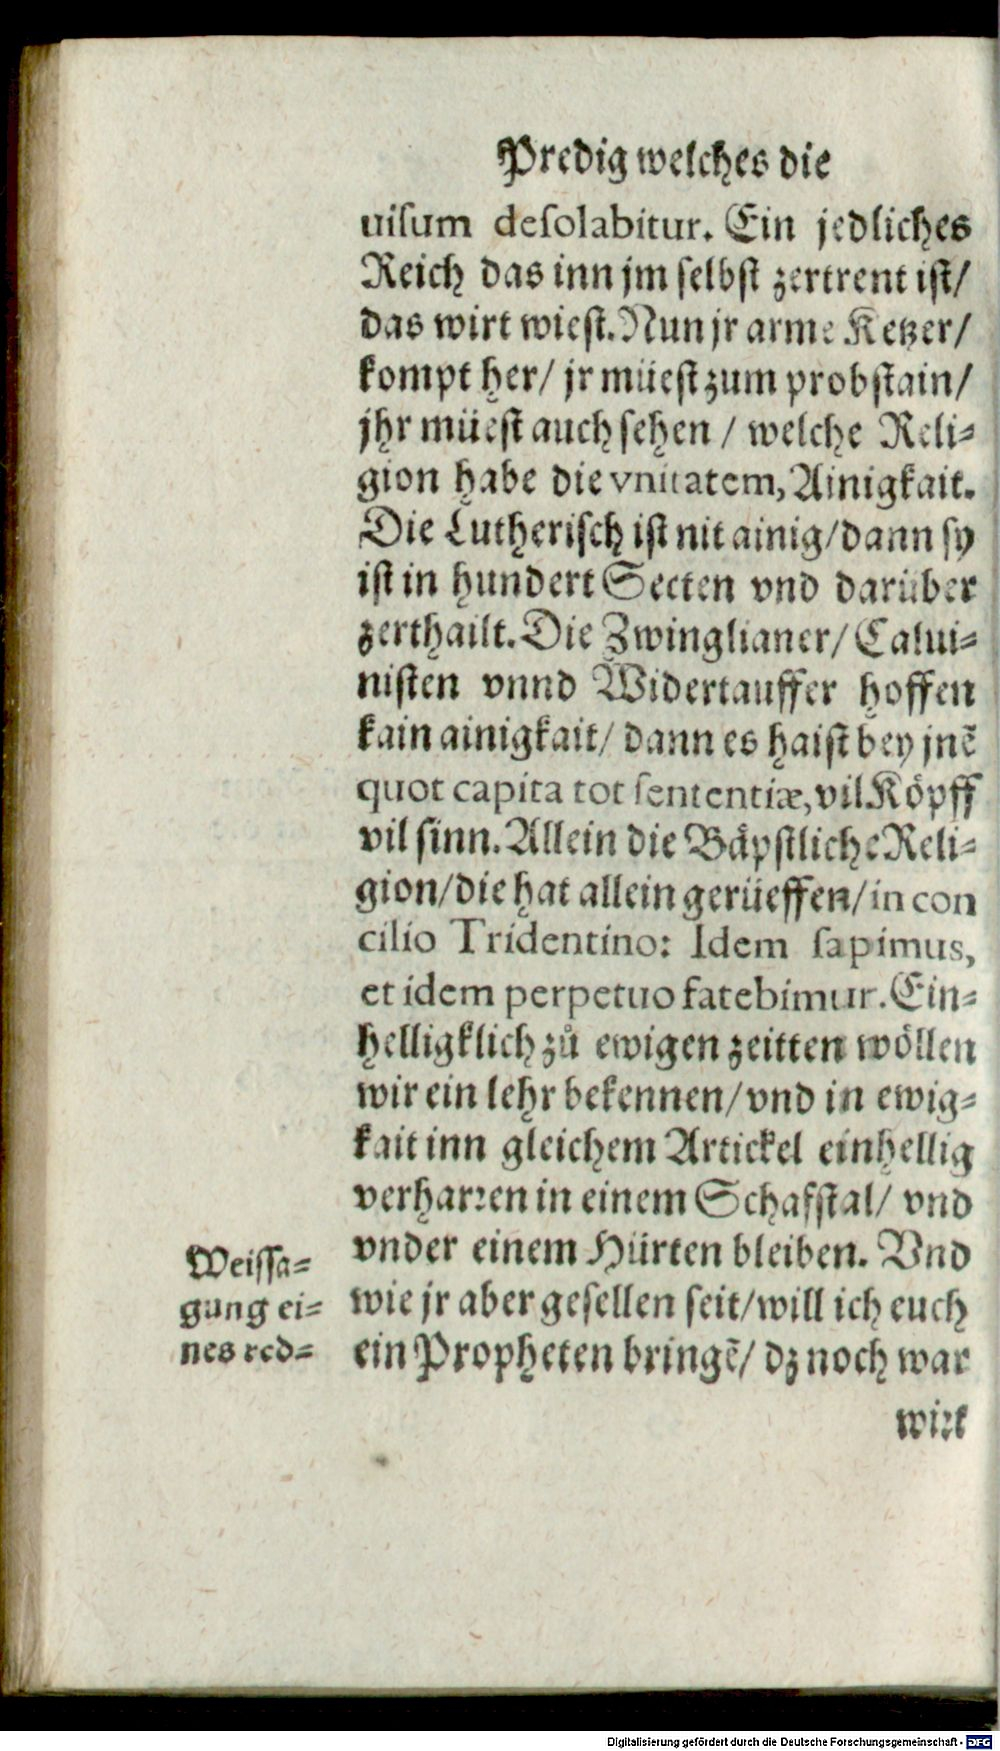 Predig welches die
uiſum deſolabitur. Ein jedliches
Reich das inn jm ſelbſt zertrent iſt/
das wirt wieſt. Nun jr arme Ketzer/
kompt her/ jr müeſt zum probſtain/
jhr müeſt auch ſehen / welche Reli⸗
gion habe die vnitatem, Ainigkait.
Die Lutheriſch iſt nit ainig/dann ſy
iſt in hundert Secten vnd darüber
zerthailt. Die Zwinglianer/ Calui⸗
niſten vnnd Widertauffer hoffen
kain ainigkait/ dann es haiſt bey jnẽ
quot capita tot ſententiæ, vil Koͤpff
vil ſinn. Allein die Baͤpſtliche Reli⸗
gion/die hat allein gerüeffen/in con
cilio Tridentino: Idem ſapimus,
et idem perpetuo fatebimur. Ein⸗
helligklich zuͦ ewigen zeitten woͤllen
wir ein lehr bekennen/vnd in ewig⸗
kait inn gleichem Artickel einhellig
verharꝛen in einem Schafſtal/ vnd
vnder einem Hürten bleiben. Vnd
wie jr aber geſellen ſeit/will ich euch
ein Propheten bringẽ/ dz noch war
Weiſſa⸗
gung ei⸗
nes red⸗
wirt
Digitalisierung gefördert durch die Deutsche Forschungsgemeinschaft - DFG